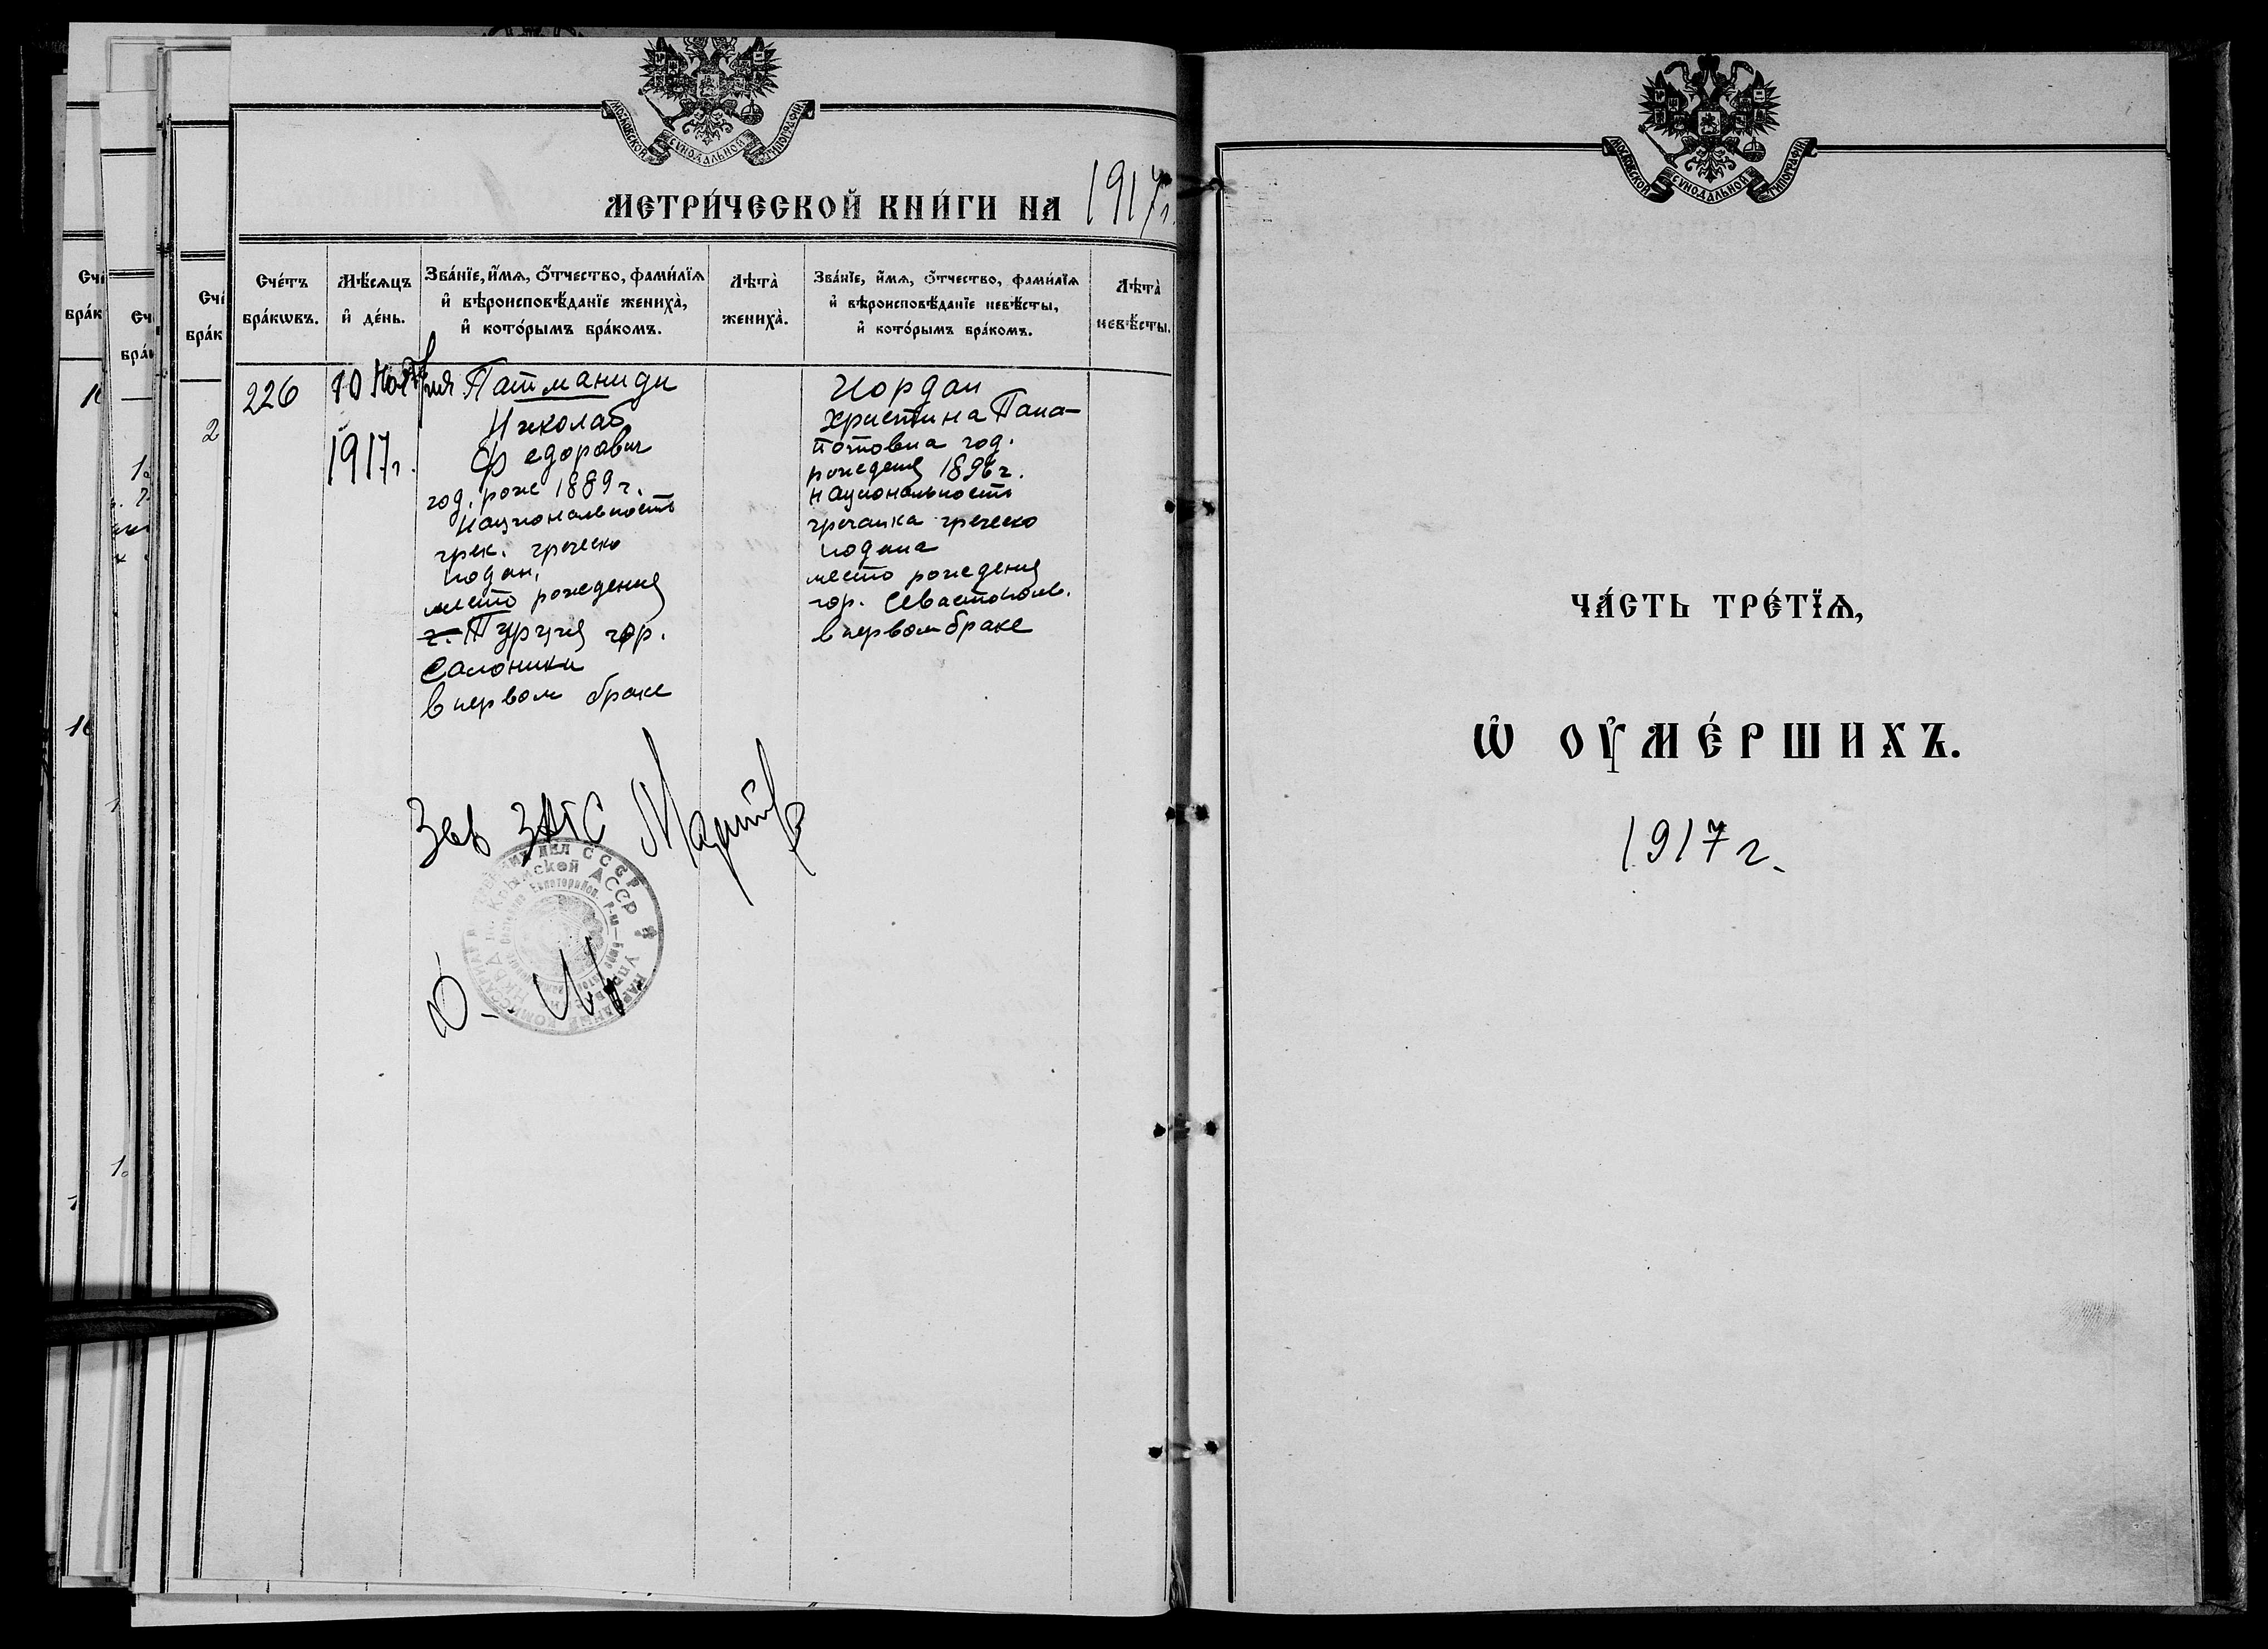 МОСКОВСКОЙ СѴНОДАЛЬНОЙ ТИПОГРАФІИ
МЕТРИ́ЧЕСКОЙ КНИ́ГИ НА 1917 г.
Сче́тъ бра́кѡвъ.
Мѣ́сѧцъ и҆ де́нь.
Зва́нїе, и҆́мѧ, ѻ҆́тчество, фами́лїѧ
и҆ вѣроисповѣ́данїе жениха̀,
и҆ кото́рымъ бра́комъ.
Лѣта̀ жениха̀.
Зва́нїе, и҆́мѧ, ѻ҆́тчество, фами́лїѧ
и҆ вѣроисповѣ́данїе невѣ́сты,
и҆ кото́рымъ бра́комъ.
Лѣта̀ невѣ́сты.
226
10 Ноября
1917 г.
Патманиди
Николай
Федорович
год. рож 1889 г.
национальность
грек. греческо
подан.
место рождения
г. Турция гор.
Салоники
в первом браке
Иордан
Христина Пана-
иотовна год.
рождения 1896 г.
национальность
гречанка греческо
подана
место рождения
гор. Севастополь.
в первом браке
Зав ЗАГС
КРЫМСКОЙ АССР
МОСКОВСКОЙ СѴНОДАЛЬНОЙ ТИПОГРАФІИ
ЧА́СТЬ ТРЕ́ТЇѦ,
Ѡ҆ ОУ҆МЕ́РШИХЪ.
1917 г.